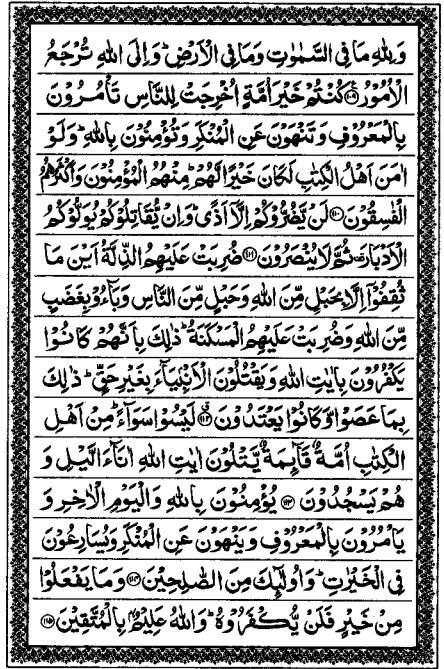 وَلِلّٰهِ مَا فِی السَّمٰوٰتِ وَمَا فِی الْاَرْضِ ؕ وَاِلَی اللّٰهِ تُرْجَعُ
الْاُمُوْرُ ﴿۱۰۹﴾ كُنْتُمْ خَیْرَ اُمَّةٍ اُخْرِجَتْ لِلنَّاسِ تَاْمُرُوْنَ
بِالْمَعْرُوْفِ وَتَنْهَوْنَ عَنِ الْمُنْكَرِ وَتُؤْمِنُوْنَ بِاللّٰهِ ؕ وَلَوْ
اٰمَنَ اَهْلُ الْكِتٰبِ لَكَانَ خَیْرًا لَّهُمْ ؕ مِنْهُمُ الْمُؤْمِنُوْنَ وَاَكْثَرُهُمُ
الْفٰسِقُوْنَ ﴿۱۱۰﴾ لَنْ یَّضُرُّوْكُمْ اِلَّاۤ اَذًی ؕ وَاِنْ یُّقَاتِلُوْكُمْ یُوَلُّوْكُمُ
الْاَدْبَارَ ۫ ثُمَّ لَا یُنْصَرُوْنَ ﴿۱۱۱﴾ ضُرِبَتْ عَلَیْهِمُ الذِّلَّةُ اَیْنَ مَا
ثُقِفُوْۤا اِلَّا بِحَبْلٍ مِّنَ اللّٰهِ وَحَبْلٍ مِّنَ النَّاسِ وَبَآءُوْ بِغَضَبٍ
مِّنَ اللّٰهِ وَضُرِبَتْ عَلَیْهِمُ الْمَسْكَنَةُ ؕ ذٰلِكَ بِاَنَّهُمْ كَانُوْا
یَكْفُرُوْنَ بِاٰیٰتِ اللّٰهِ وَیَقْتُلُوْنَ الْاَنْۢبِیَآءَ بِغَیْرِ حَقٍّ ؕ ذٰلِكَ
بِمَا عَصَوْا وَّكَانُوْا یَعْتَدُوْنَ ﴿۱۱۲﴾ لَیْسُوْا سَوَآءً ؕ مِنْ اَهْلِ
الْكِتٰبِ اُمَّةٌ قَآئِمَةٌ یَّتْلُوْنَ اٰیٰتِ اللّٰهِ اٰنَآءَ الَّیْلِ وَ
هُمْ یَسْجُدُوْنَ ﴿۱۱۳﴾ یُؤْمِنُوْنَ بِاللّٰهِ وَالْیَوْمِ الْاٰخِرِ وَ
یَاْمُرُوْنَ بِالْمَعْرُوْفِ وَیَنْهَوْنَ عَنِ الْمُنْكَرِ وَیُسَارِعُوْنَ
فِی الْخَیْرٰتِ ؕ وَاُولٰٓئِكَ مِنَ الصّٰلِحِیْنَ ﴿۱۱۴﴾ وَمَا یَفْعَلُوْا
مِنْ خَیْرٍ فَلَنْ یُّكْفَرُوْهُ ؕ وَاللّٰهُ عَلِیْمٌۢ بِالْمُتَّقِیْنَ ﴿۱۱۵﴾